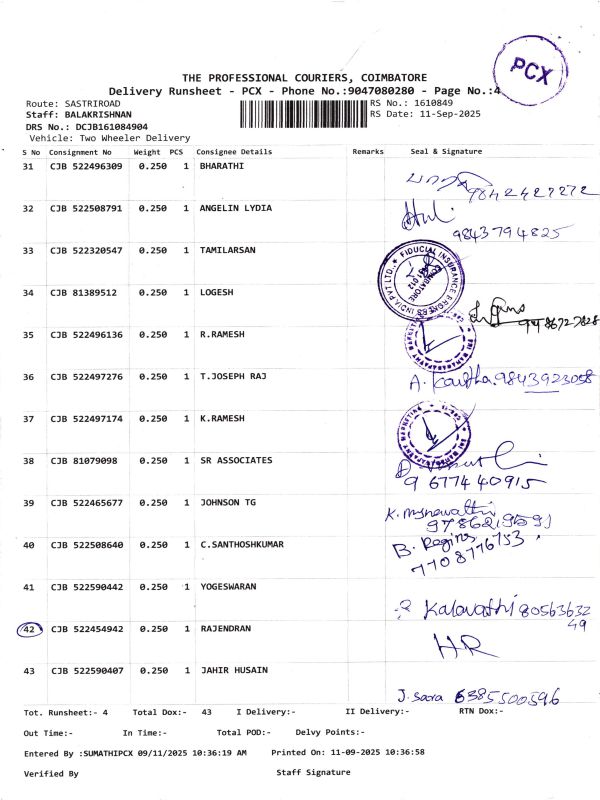 PCX
THE PROFESSIONAL COURIERS, COIMBATORE
Delivery Runsheet - PCX - Phone No.:9047080280 - Page No.:4
Route: SASTRIROAD
RS No.: 1610849
Staff: BALAKRISHNAN
RS Date: 11-Sep-2025
DRS No.: DCJB161084904
Vehicle: Two Wheeler Delivery
S No Consignment No Weight PCS Consignee Details Remarks Seal & Signature
31 CJB 522496309 0.250 1 BHARATHI
9842427272
32 CJB 522508791 0.250 1 ANGELIN LYDIA
9843794825
33 CJB 522320547 0.250 1 TAMILARSAN
FIDUCIAL INSURANCE BROKERS INDIA PVT LTD.,
COIMBATORE
34 CJB 81389512 1 LOGESH
35 CJB 522496136 0.250 1 R.RAMESH
36 CJB 522497276 0.250 1 T.JOSEPH RAJ
A. 9843923058
37 CJB 522497174 0.250 1 K.RAMESH
38 CJB 81079098 0.250 1 SR ASSOCIATES
9677440915
39 CJB 522465677 0.250 1 JOHNSON TG
40 CJB 522508640 0.250 1 C.SANTHOSHKUMAR
B. Regina
7708776753
41 CJB 522590442 0.250 1 YOGESWARAN
Kalavathi 80563632
49
42 CJB 522454942 0.250 1 RAJENDRAN
HR
43 CJB 522590407 0.250 1 JAHIR HUSAIN
J. Saora 6385500596
Tot. Runsheet:- 4 Total Dox:- 43 I Delivery:- II Delivery:- RTN Dox:-
Out Time:- In Time:- Total POD:- Delvy Points:-
Entered By :SUMATHIPCX 09/11/2025 10:36:19 AM Printed On: 11-09-2025 10:36:58
Verified By Staff Signature